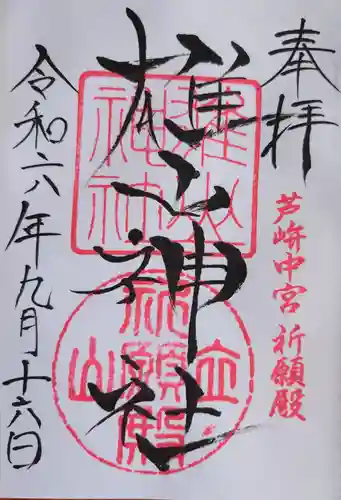 奉拝
芦峅中宮 祈願殿
雄山神社
雄山
神社
立
祈願殿
山
令和六年九月十六日